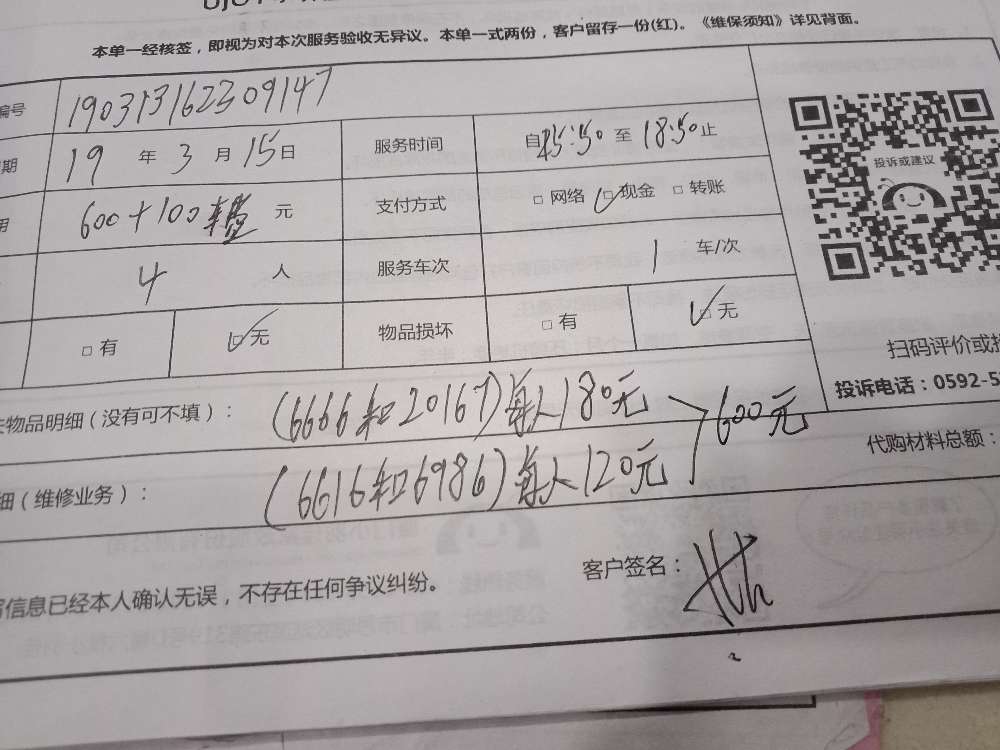 本单一经核签，即视为对本次服务验收无异议。本单一式两份，客户留存一份(红)。《维保须知》详见背面。
编号 190313162309147
期 19 年 3 月 15 日 服务时间 自 15:50 至 18:50 止
用 600+100 元 支付方式 □ 网络 □ 现金 □ 转账
4 人 服务车次 1 车/次
□ 有 □ 无 物品损坏 □ 有 □ 无
投诉或建议
扫码评价或投
投诉电话：0592-5
物品明细（没有可不填）： (6666和20167)每人180元
600元
细（维修业务）： (6616和6986)每人120元
代购材料总额：
信息已经本人确认无误，不存在任何争议纠纷。
客户签名：